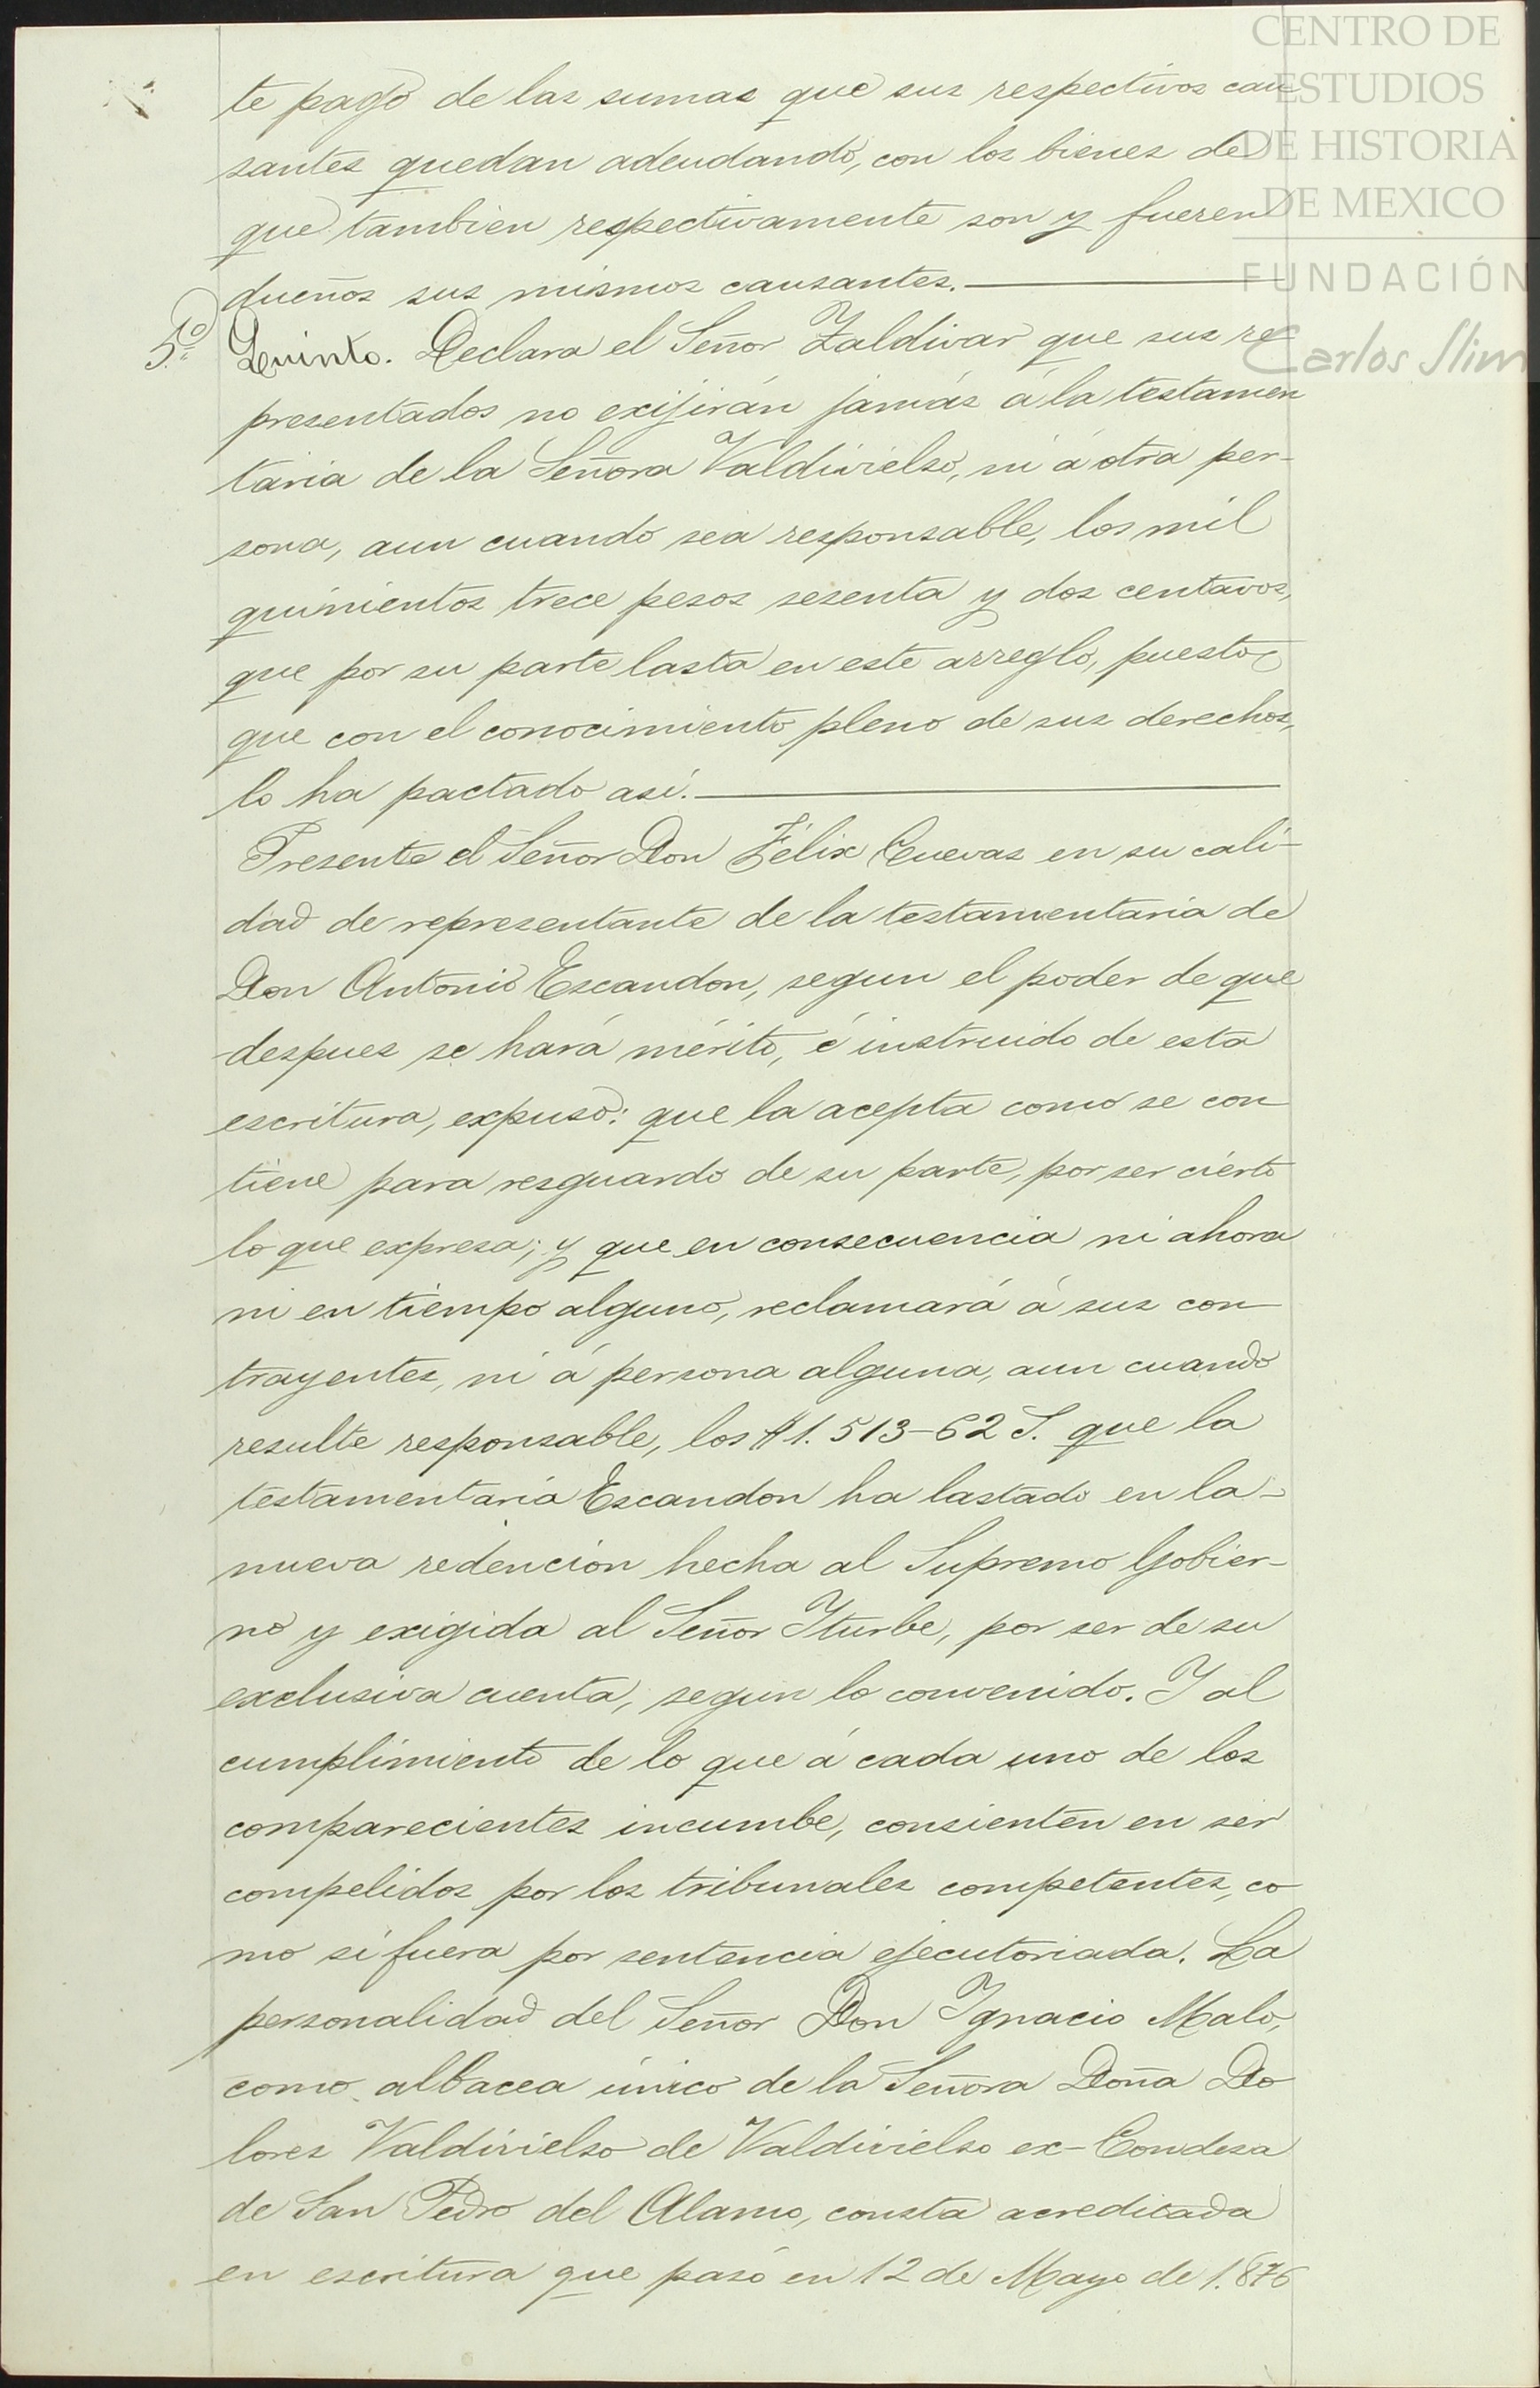 CENTRO DE
ESTUDIOS
DE HISTORIA
DE MEXICO
FUNDACIÓN
Carlos Slim
te pago de las sumas que sus respectivos cau-
santes quedan adeudando, con los bienes de
que tambien respectivamente son y fueren
dueños sus mismos causantes.
5º Quinto. Declara el Señor Zaldivar que sus re
presentados no exijirán jamás á la testamen
taria de la Señora Valdivielso, ni á otra per-
sona, aun cuando sea responsable, los mil
quinientos trece pesos sesenta y dos centavos,
que por su parte lasta en este arreglo, puesto
que con el conocimiento pleno de sus derechos,
lo ha pactado asi.
Presente el Señor Don Félix Cuevas en su cali-
dad de representante de la testamentaria de
Don Antonio Escandon, segun el poder de que
despues se hará mérito, é instruido de esta
escritura, expuso: que la acepta como se con
tiene para resguardo de su parte, por ser cierto
lo que expresa; y que en consecuencia ni ahora
ni en tiempo alguno, reclamará á sus con
trayentes, ni á persona alguna, aun cuando
resulte responsable, los $1.513-62 S. que la
testamentaria Escandon ha lastado en la-
nueva redencion hecha al Supremo Gobier-
no y exigida al Señor Yturbe, por ser de su
exclusiva cuenta, segun lo convenido. Y al
cumplimiento de lo que á cada uno de los
comparecientes incumbe, consienten en ser
compelidos por los tribunales competentes, co
mo si fuera por sentencia ejecutoriada. La
personalidad del Señor Don Ygnacio Malo,
como albacea único de la Señora Doña Do
lores Valdivielso de Valdivielso ex-Condesa
de San Pedro del Alamo, consta acreditada
en escritura que pasó en 12 de Mayo de 1.876